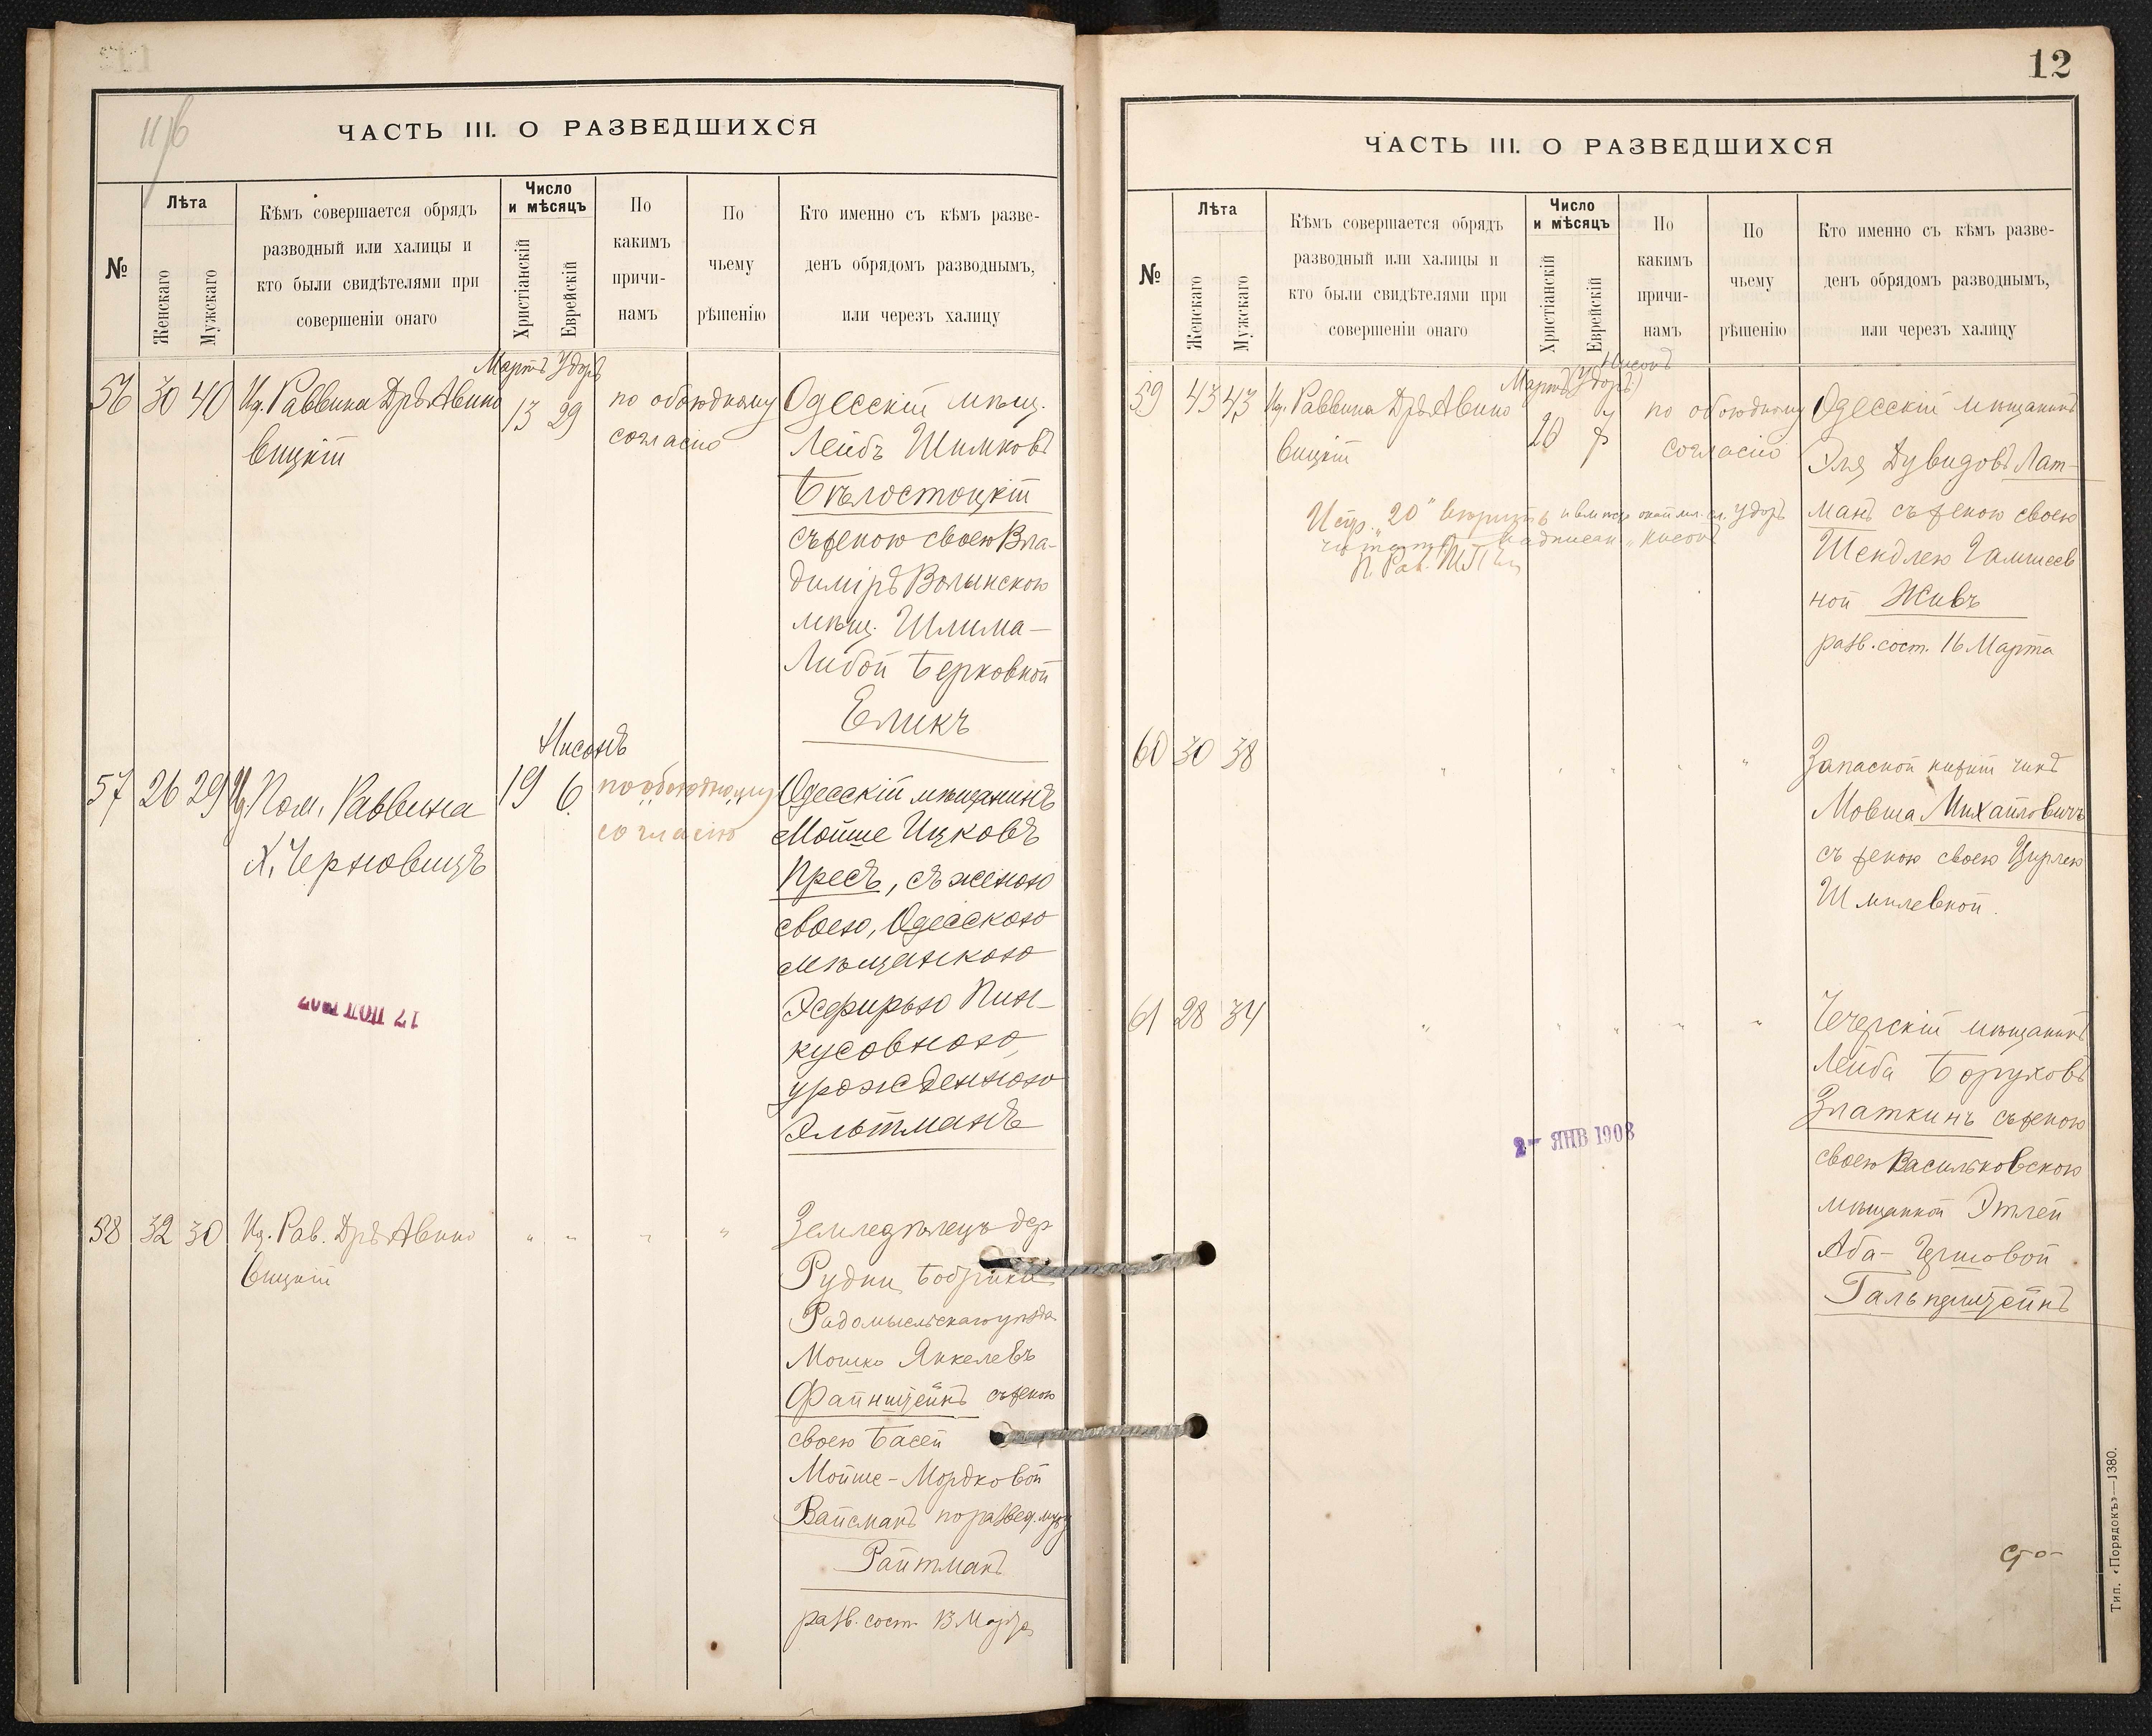 ЧАСТЬ III. О РАЗВЕДШИХСЯ
№
Лѣта
Женскаго
Мужскаго
Кѣмъ совершается обрядъ
разводный или халицы и
кто были свидѣтелями при
совершеніи онаго
Число
и мѣсяцъ
Христіанскій
Еврейскій
По
какимъ
причи-
намъ
По
чьему
рѣшенію
Кто именно съ кѣмъ разве-
денъ обрядомъ разводнымъ,
или черезъ халицу
Мартъ Удоръ
56 30 40 Иц. Раввина Дръ Авино
вицкій
13 29
по обоюдному
согласію
Одесскій мѣщ.
Лейбъ Шимковъ
Бѣлостоцкій
съ женою своею Вла-
диміръ Волынскою
мѣщ. Шлима-
Либой Берковной
Еликъ
Нисонъ
57 26 29 Пом. Раввина
Х. Черновицъ
19 6
по обоюдному
согласію
Одесскій мѣщанинъ
Мойше Ицковъ
Пресъ, съ женою
своею, Одесскою
мѣщанкою
Эсфирью Пин-
кусовною,
урожденною
Альтманъ
17 1907
58 32 30 Иц. Рав. Дръ Авино
вицкій
" " " "
Земледѣлецъ дер
Рудни Бобрики
Радомысльскаго уѣзда
Мошко Янкелевъ
Файнштейнъ съ женою
своею Басей
Мойше-Мордковой
Вайсманъ по развед. мужу
Райтманъ
разв. сост. 13 Марта
12
ЧАСТЬ III. О РАЗВЕДШИХСЯ
№
Лѣта
Женскаго
Мужскаго
Кѣмъ совершается обрядъ
разводный или халицы и
кто были свидѣтелями при
совершеніи онаго
Число
и мѣсяцъ
Христіанскій
Еврейскій
По
какимъ
причи-
намъ
По
чьему
рѣшенію
Кто именно съ кѣмъ разве-
денъ обрядомъ разводнымъ,
или черезъ халицу
Нисонъ
Мартъ (Удоръ)
59 43 43 Иц. Раввина Дръ Авино
вицкій
20 7
по обоюдному
согласію
Испр. "20" вѣрить Удоръ
читать надписан. "Нисонъ"
П. Рав.
Одесскій мѣщанинъ
Эля Дувидовъ Лат-
манъ съ женою своею
Шендлею Гамшеев
ной Живъ
разв. сост. 16 Марта
60 30 38
" " " " "
Запасной нижній чинъ
Мовша Михайловичъ
съ женою своею Цирлею
Шмилевной.
61 28 34
" " " " "
Чечерскій мѣщанинъ
Лейба Боруховъ
Златкинъ съ женою
своею Васильковскою
мѣщанкой Этлей
Аба-Гершовой
Гальперштейнъ
2- ЯНВ 1908
Тип. «Порядокъ»—1380.